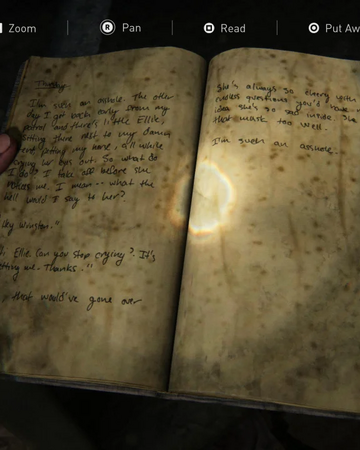 Zoom
R Pan
Read
Put Aw
I'm such an asshole. The other
day I got back early from my
patrol and there's little Ellie,
sitting there next to my damn
horse, all while
crying her eyes out. So what do
I do? I take off before she
notices me. I mean -- what the
hell would I say to her?
Hey Winston.
Ellie. Can you stop crying? It's
me. Thanks."
that would've gone over
She's always so cheery with
questions you'd
idea she's so sad inside. She
that mask too well.
I'm such an asshole.